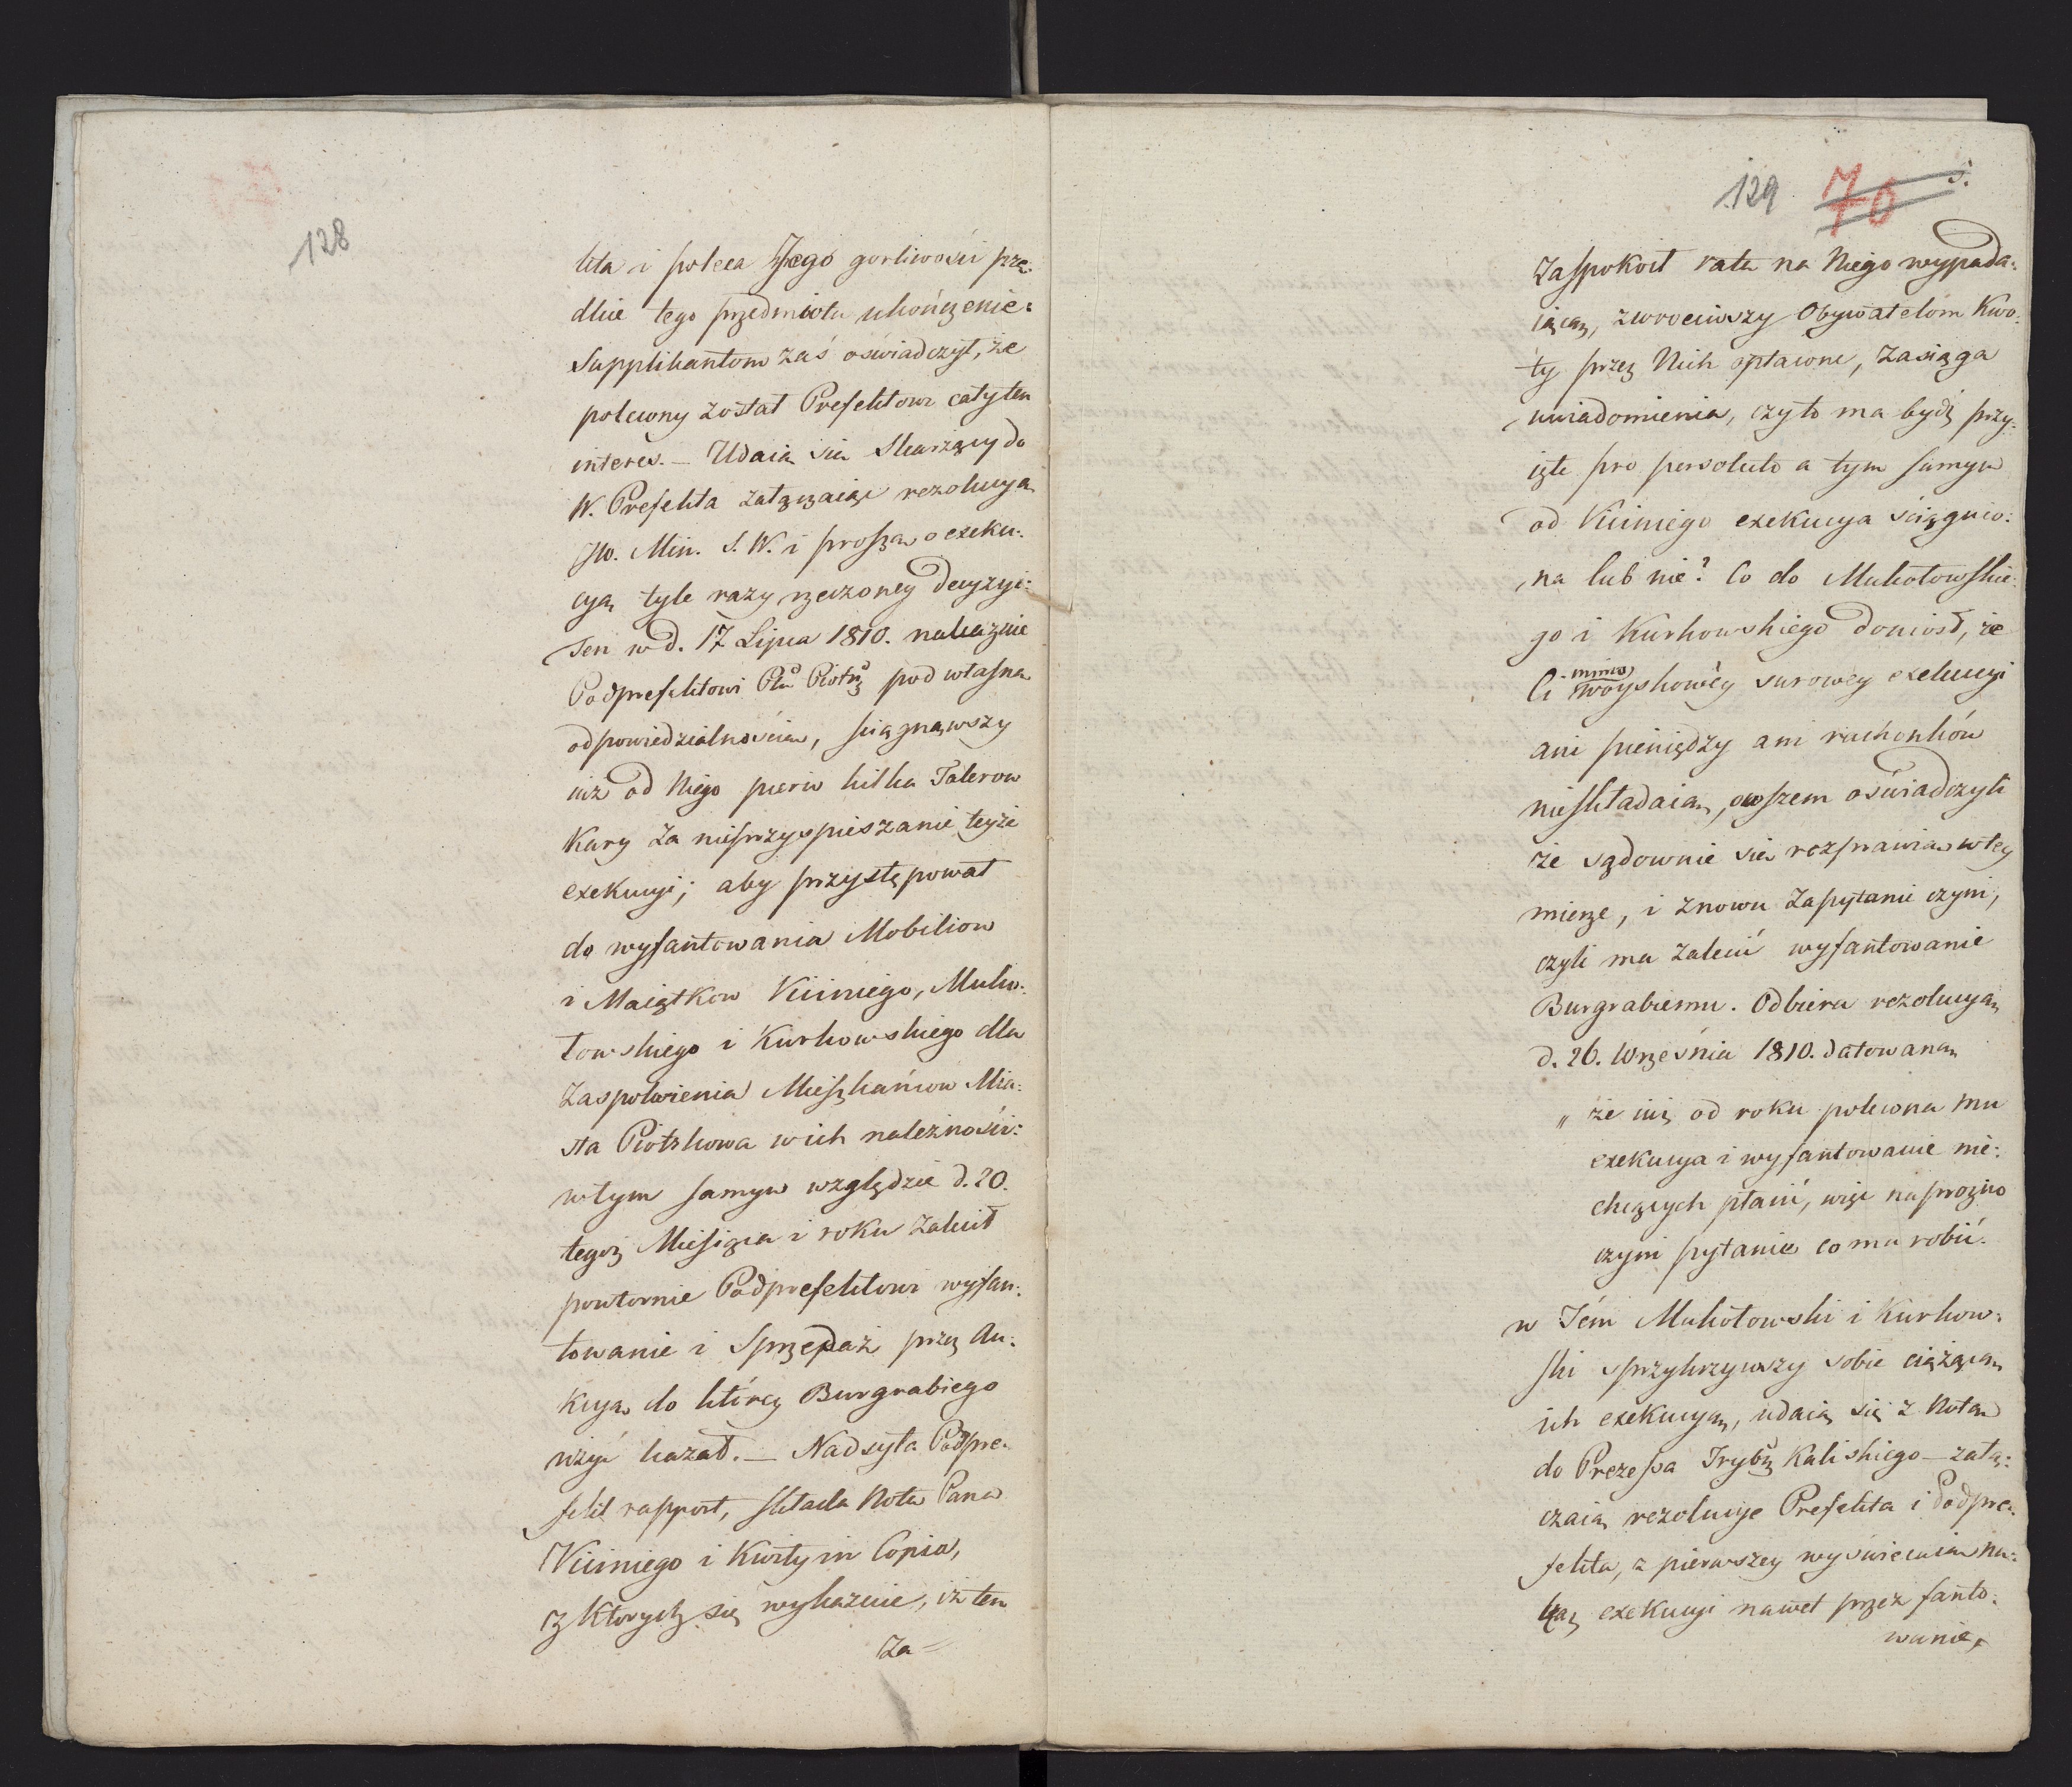 128
kta i poleca Jego gorliwości prę:
dkie tego przedmiotu ukończenie:
Supplikantom zaś oświadczył, że
polecony został Prefektowi cały ten
interes. — Udaią się Skarżący do
W. Prefekta załączaiąc rezolucyą
JW. Min. S. W. i proszą o exeku:
cyą tyle razy rzeczoney decyzyi:
Ten w d. 17 Lipca 1810. nakazuie
Podprefektowi Ptu Piotrz pod własną
odpowiedzialnością, sciągnąwszy
iuż od Niego pierw kilka Talerow
Kary za nieprzyspieszanie teyże
exekucyi; aby przystępował
do wyfantowania Mobiliow
i Maiątkow Kiciniego, Muko:
łowskiego i Kurkowskiego dla
Zaspokoienia Mieszkańcow Mia:
sta Piotrkowa w ich należności:
w tym samym względzie d. 20.
tegoż Miesiąca i roku zalecił
powtornie Podprefektowi wyfan:
towanie i Sprzedaż przez Au:
kcyą do którey Burgrabiego
użyć kazał. — Nadsyła Podpre:
fekt rapport, składa Notę Pana
Kiciniego i Kwity in Copia,
z Ktorych się wykazuie, iż ten
Za=
129 70 5.
Zaspokoił ratę na Niego wypada:
iącą, zwrociwszy Obywatelom Kwo:
ty przez Nich opłacone, Zasiąga
uwiadomienia, czy to ma bydź przy:
ięte pro persoluto a tym samym
od Kiciniego exekucya ściągnio:
na lub nie? Co do Mukołowskie:
go i Kurkowskiego doniosł, że
Ci mimo woyskowéy surowey exekucyi
ani pieniędzy ani rachonków
nieskładaią, owszem oświadczyli
że sądownie się rozprawią w tey
mierze, i znowu Zapytanie czyni,
czyli ma Zalecić wyfantowanie
Burgrabiemu. Odbiera rezolucyą
d. 26. Września 1810. datowaną
„ że iuż od roku polecona mu
exekucya i wyfantowanie nie:
chcących płacić, więc naprozno
czyni pytanie co ma robić.
w Tém Mukołowski i Kurkow:
ski sprzykrzywszy sobie ciążącą
ich exekucyą, udaią się z Notą
do Prezesa Trybż Kaliskiego — załą:
czaią rezolucye Prefekta i Podpre:
fekta, z pierwszey wyświecaią na:
kaz exekucyi nawet przez fanto:
wanie,